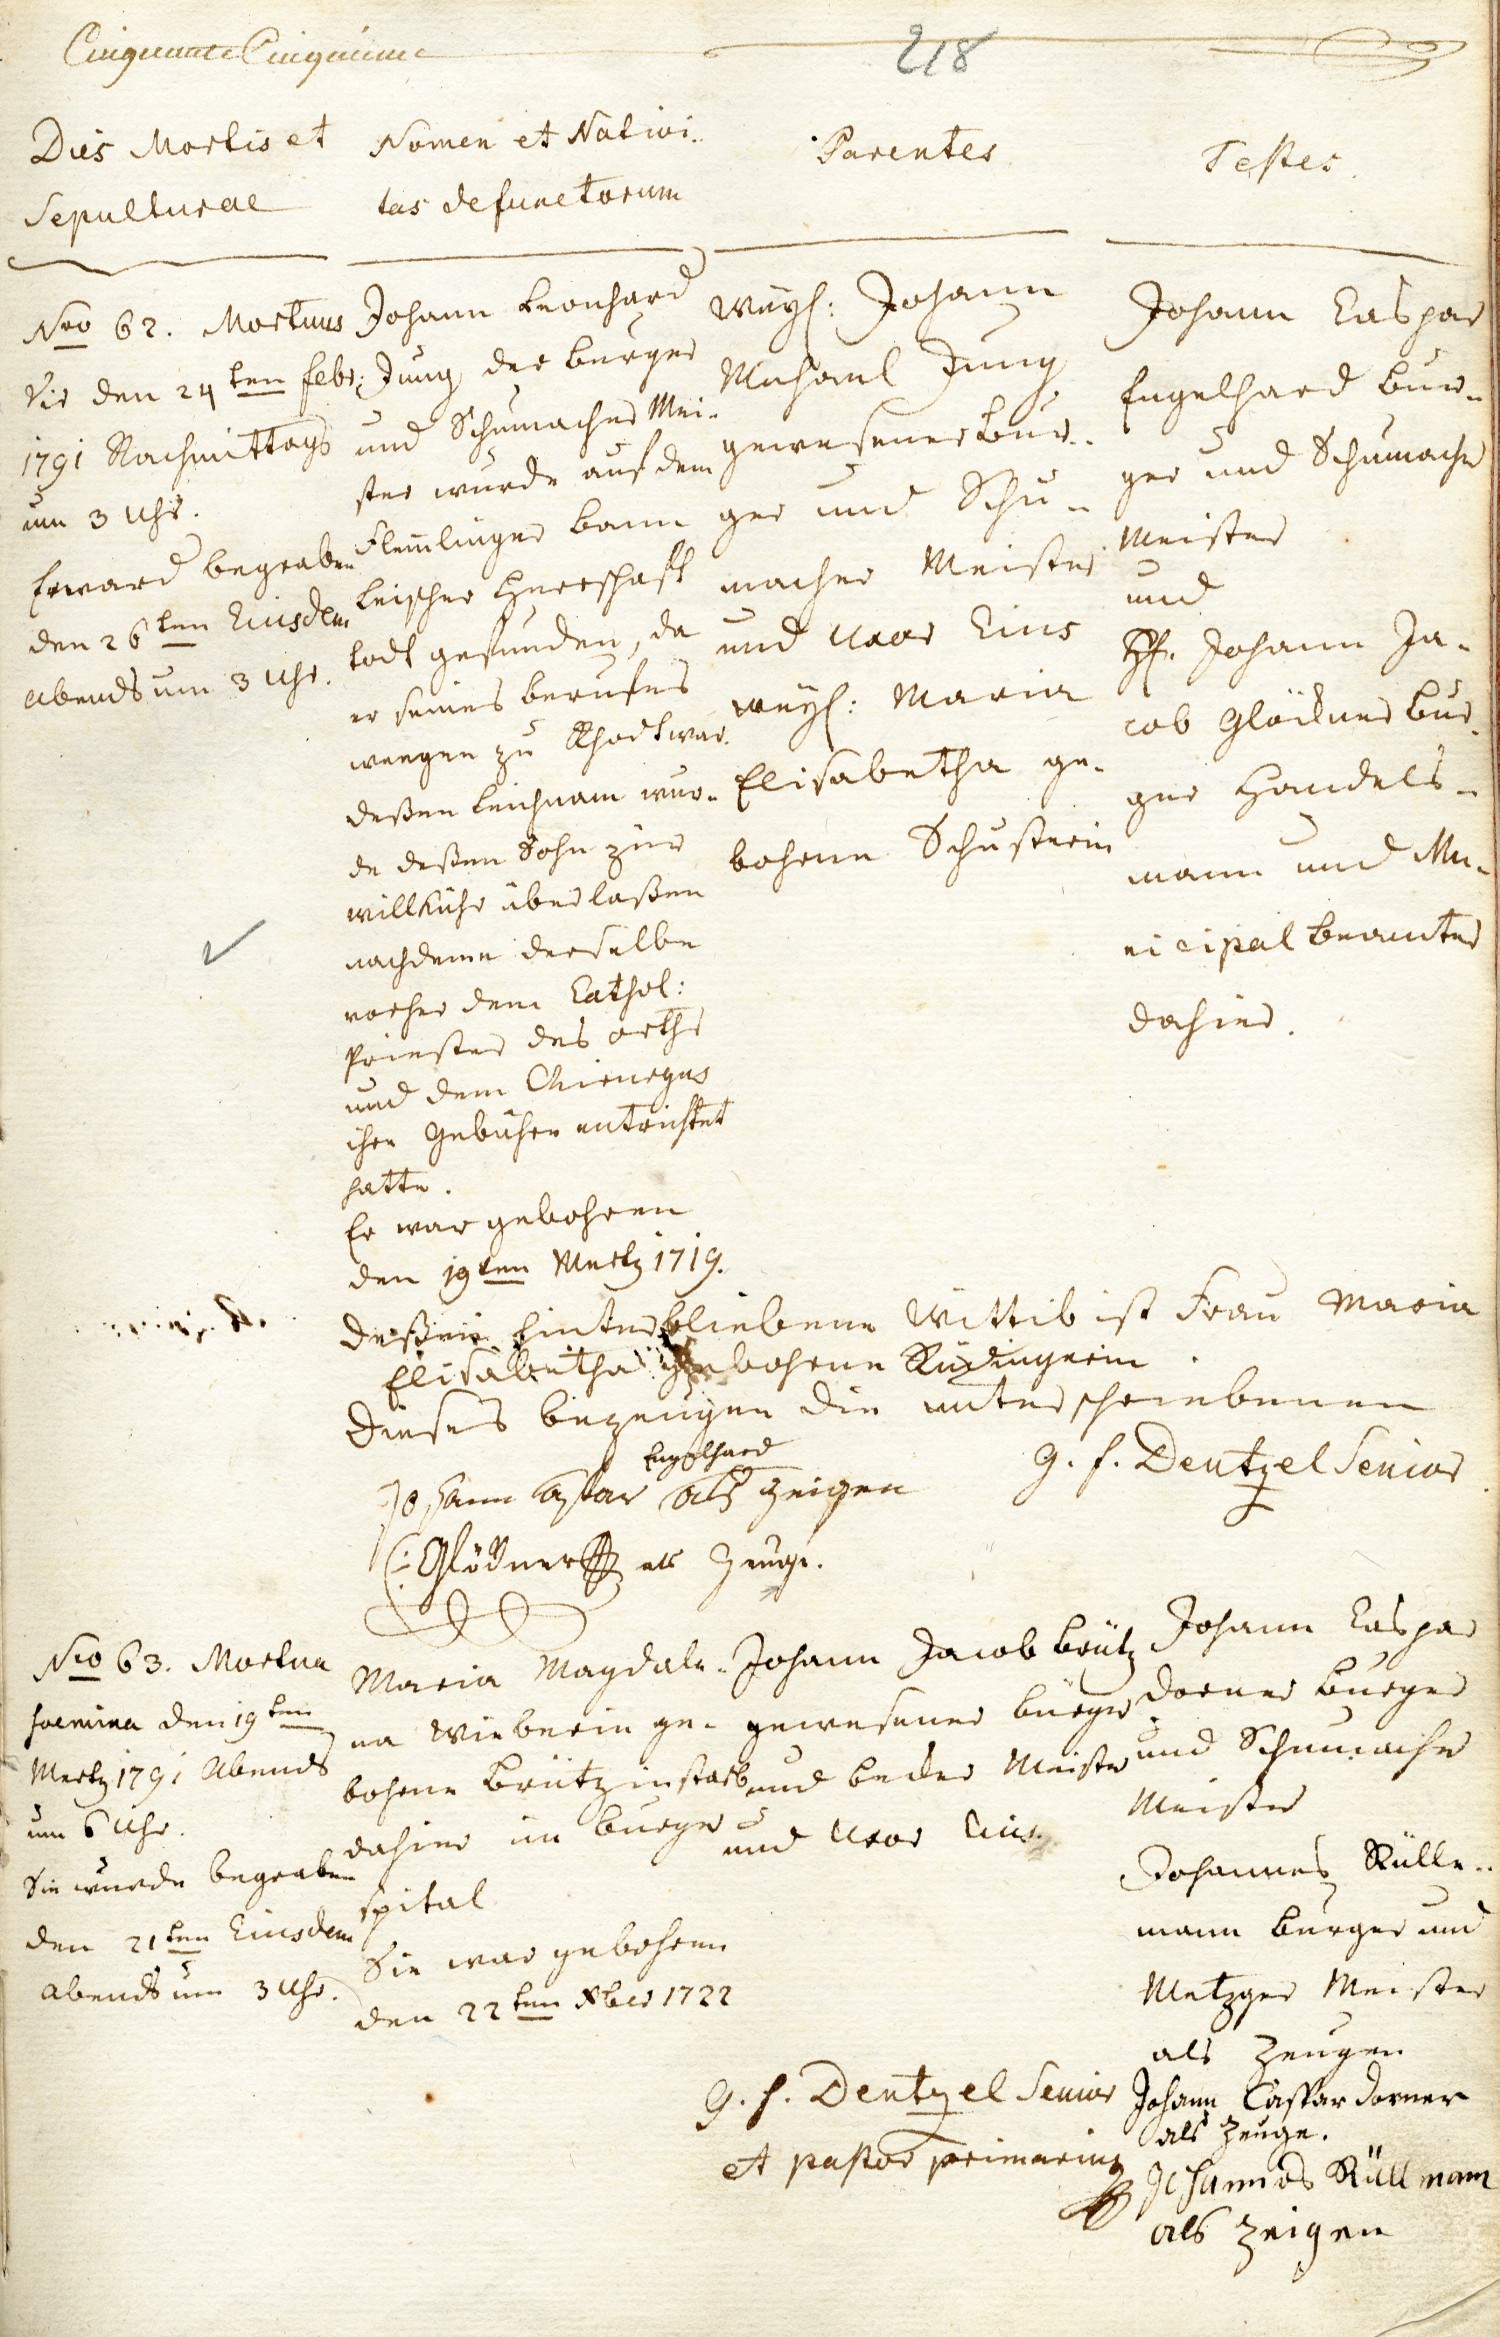 Cinquante Cinquieme
218
Dies Mortis et
Sepulturae
Nomen et Nativi-
tas defunctorum
Parentes
Testes
Nro 62. Mortuus
Vir den 24ten Febr:
1791 Nachmittags
um 3 Uhr.
Er ward begraben
den 26ten Eiusdem
abends um 3 Uhr.
Johann Leonhard
Jung der burger
und Schumacher Mei-
ster wurde auf dem
Flemlinger bann
Leischer Herrschaft
todt gefunden, da
er seines berufes
weegen zu Rhodt war.
deßen Leichnam wur-
de deßen Sohn zur
willkühr überlaßen
nachdeme derselbe
vorher dem Cathol:
Priester des orths
und dem Chirurgus
ihre Gebühren entrichtet
hatte.
Er war gebohren
den 19ten Mertz 1719.
weyl: Johann
Michael Jung
gewesener bur-
ger und Schu-
macher Meister
und Uxor Eius
weyl: Maria
Elisabetha ge-
bohrne Schusterin
Johann Caspar
Engelhard bur-
ger und Schumacher
Meister
und
H. Johann Ja-
cob Glöckner bur-
ger Handels-
mann und Mu-
nicipal beamter
dahier.
deßen hinterbliebene Wittib ist Frau Maria
Elisabetha gebohrne Rüdingerin.
Dieses bezeugen die unterschriebenen
G. F. Dentzel Senior
Engelhard
Johann Casbar als Zeigen
Glöckner als Zeuge.
Nro 63. Mortua
foemina den 19ten
Mertz 1791 Abends
um 6 Uhr.
Sie wurde begraben
den 21ten Eiusdem
abends um 3 Uhr.
Maria Magdale-
na Wieberin ge-
bohrne Brützin starb
dahier im burger
spital
Sie war gebohren
den 22ten Xber 1722
Johann Jacob Brütz
gewesener burger
und becker Meister
und Uxor Eius.
Johann Caspar
Dorner burger
und Schumacher
Meister
Johannes Rülle-
mann burger und
Metzger Meister
als Zeugen
Johann Caspar Dorner
als Zeuge.
Johannes Rüllmann
als Zeigen
G. F. Dentzel Senior
et pastor primarius